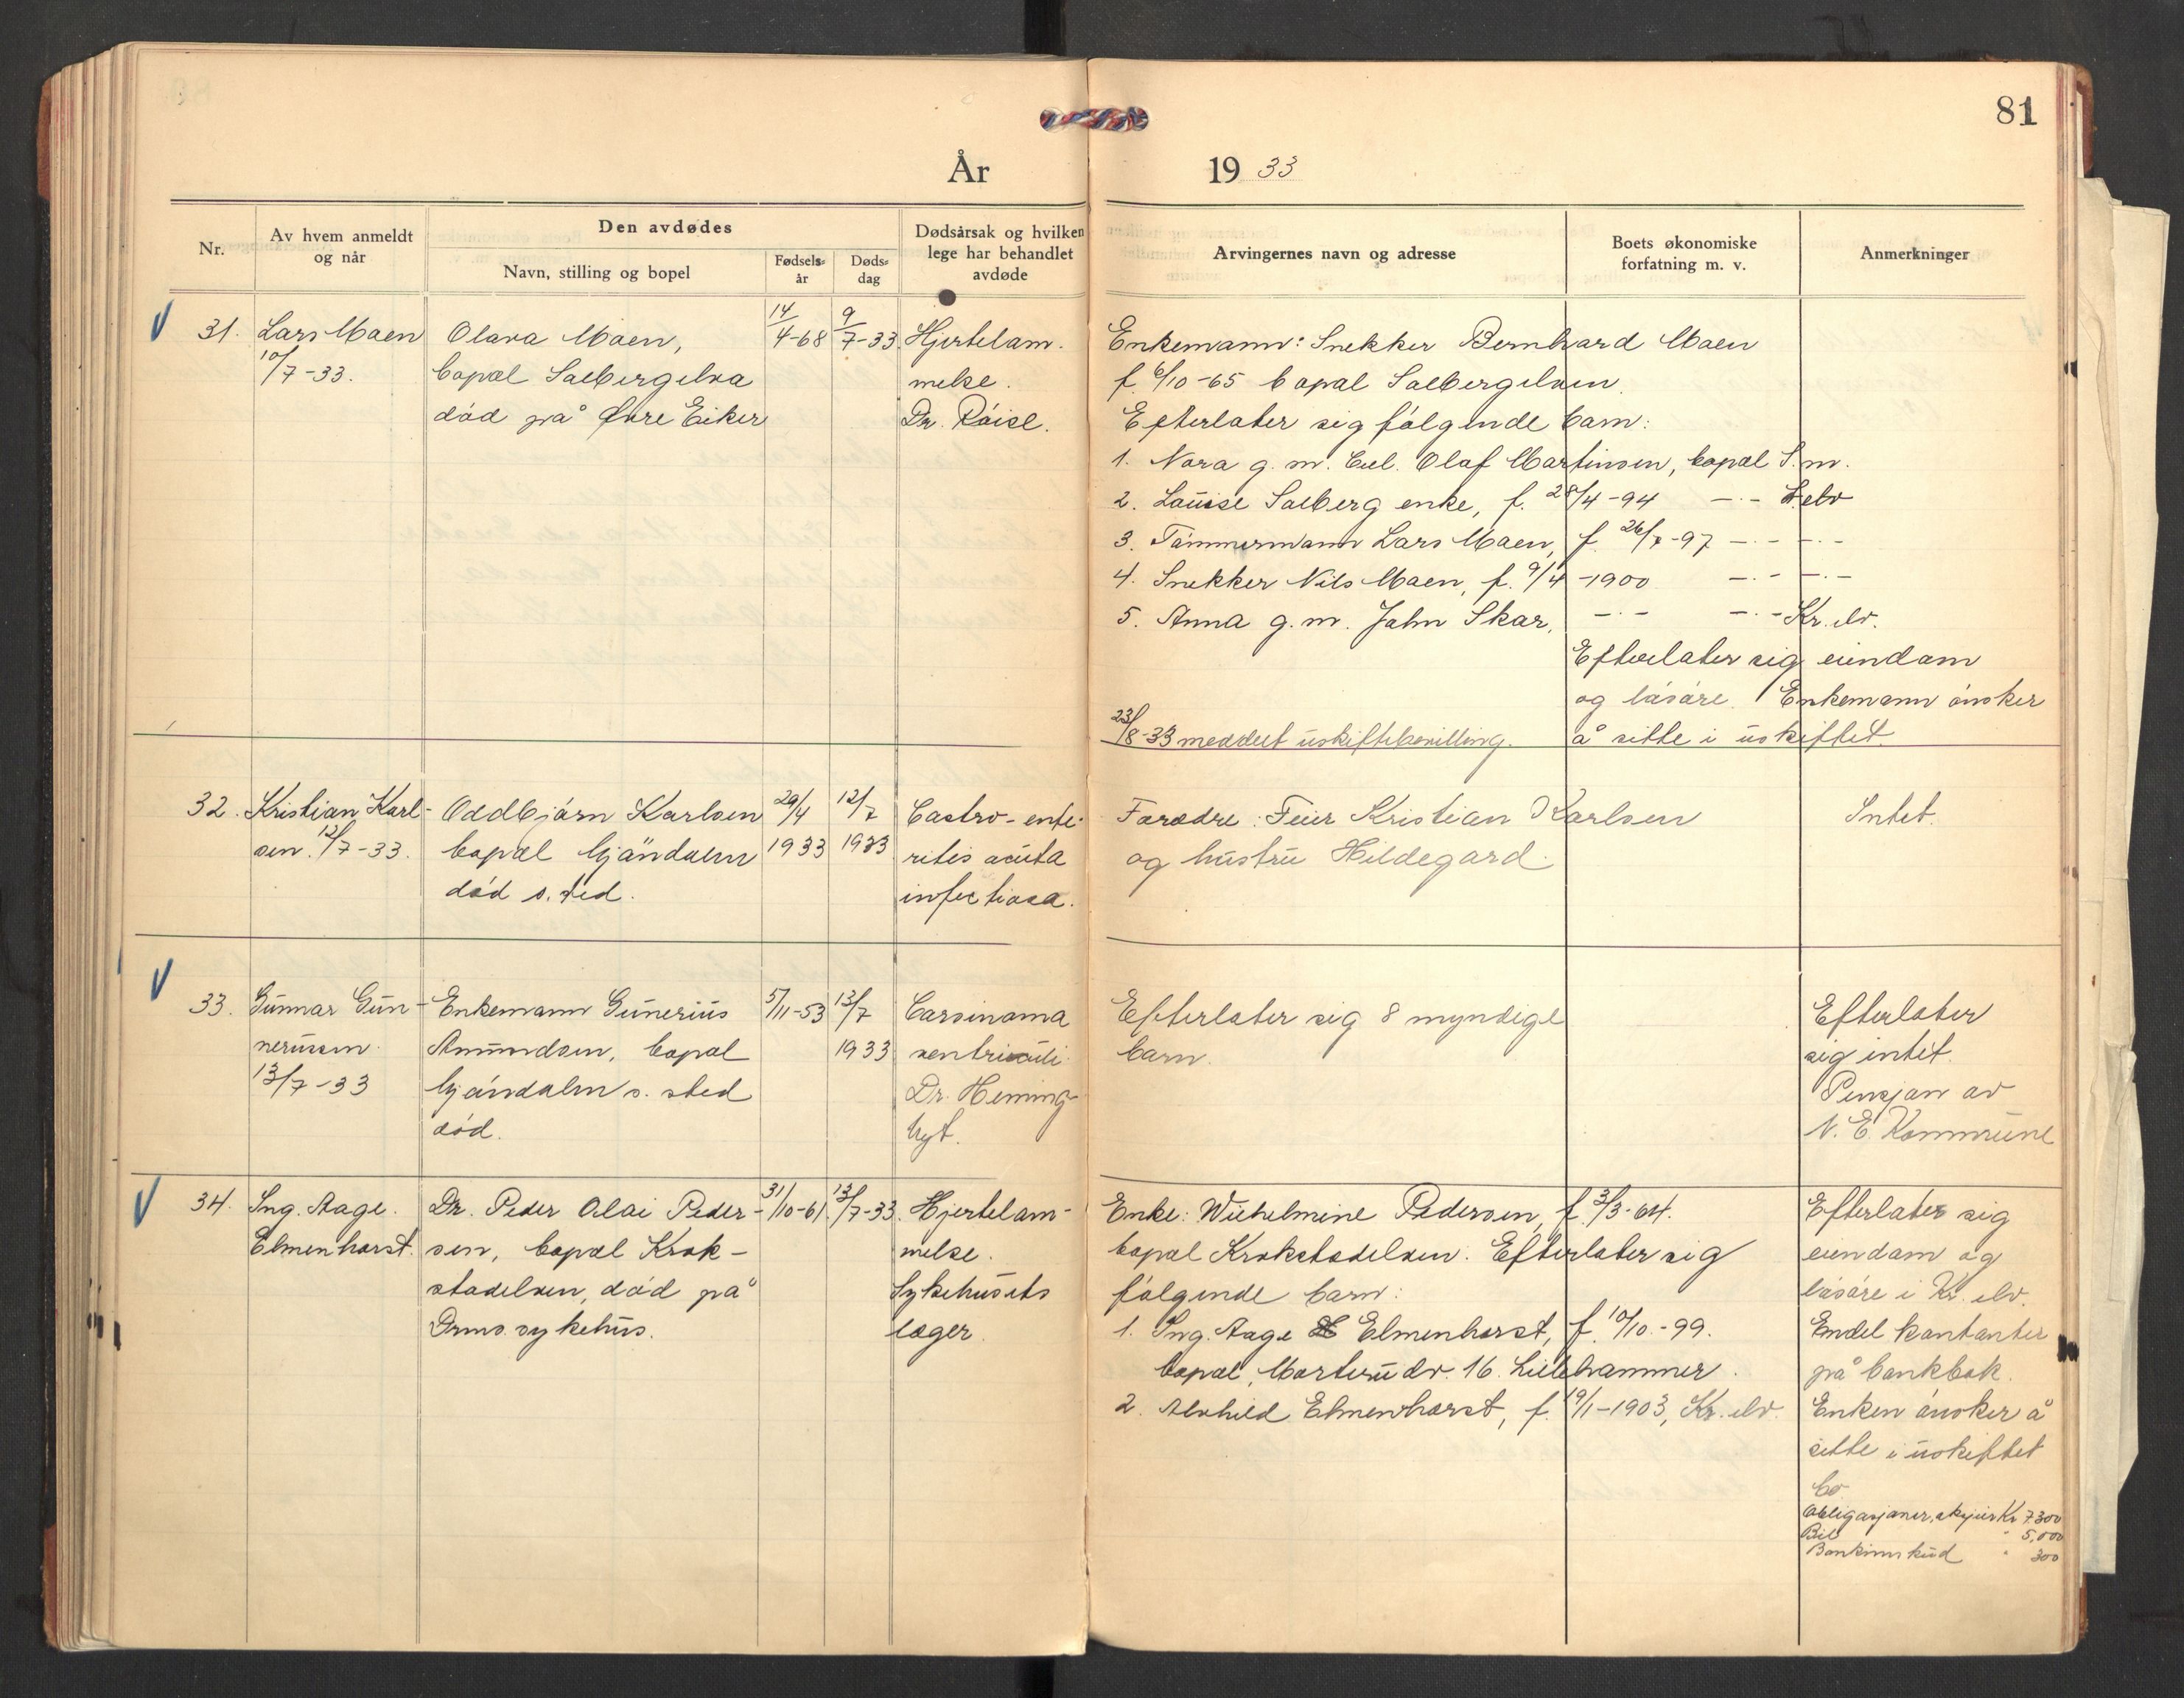 81
År 1933
Nr.
Av hvem anmeldt og når
Den avdødes
Navn, stilling og bopel
Fødsels= år
Døds= dag
Dødsårsak og hvilken lege har behandlet avdøde
Arvingernes navn og adresse
Boets økonomiske forfatning m. v.
Anmerkninger
31. Lars Moen
10/7-33.
Olava Moen,
bopæl Solbergelva
død på Øvre Eiker
14/4-68
9/7-33
Hjertelam-
melse.
Dr. Röise.
Enkemann: Snekker Bernhard Moen
f. 6/10-65 bopæl Solbergelven.
Efterlater sig følgende barn:
1. Nora g. m. Olaf Martinsen, bopæl S.m.
2. Louise Solberg enke, f. 28/4-94 -.- S.elv
3. Tømmermann Lars Moen, f. 26/7-97 -.- -.-
4. Snekker Nils Moen, f. 9/4-1900 -.- -.-
5. Anna g. m. John Skar, -.- -.- Kr. elv.
Efterlater sig eiendom
og løsøre. Enkemann ønsker
å sitte i uskiftet.
23/8-33 meddelt uskiftebevilling.
32. Kristian Karl-
sen. 12/7-33.
Oddbjørn Karlsen
bopæl Mjøndalen
død s. sted.
29/4
1933
12/7
1933
Gastro-ente-
ritis acuta
infectiosa.
Forædre: Feier Kristian Karlsen
og hustru Hildegard.
Intet.
33. Gunnar Gun-
nerussen.
13/7-33
Enkemann Gunerius
Amundsen, bopæl
Mjøndalen s. sted
død.
5/11-53
13/7
1933
Carsinoma
ventriculi.
Dr. Heming-
hyt.
Efterlater sig 8 myndige
barn.
Efterlater
sig intet.
Pensjon av
N. E. Kommune
34. Ing. Aage
Elmenhorst.
Dr. Peder Olai Peder-
sen, bopæl Krok-
stadelven, død på
Drms. sykehus.
31/10-61.
13/7-33.
Hjertelam-
melse.
Sykehusets
læger.
Enke: Wilhelmine Pedersen, f. 3/3-64.
bopæl Krokstadelven. Efterlater sig
følgende barn:
1. Ing. Aage Elmenhorst, f. 10/10.-99.
bopæl, 16. Lillehammer.
2. Alvhild Elmenhorst, f. 19/1-1903, Kr. elv.
Efterlater sig
eiendom og
løsøre i Kr. elv.
Endel kontanter
på bankbok.
Enken ønsker å
sitte i uskiftet
bo
Obligasjoner, aksjer Kr 7.300
Bil " 5,000
Bankinnskud " 300